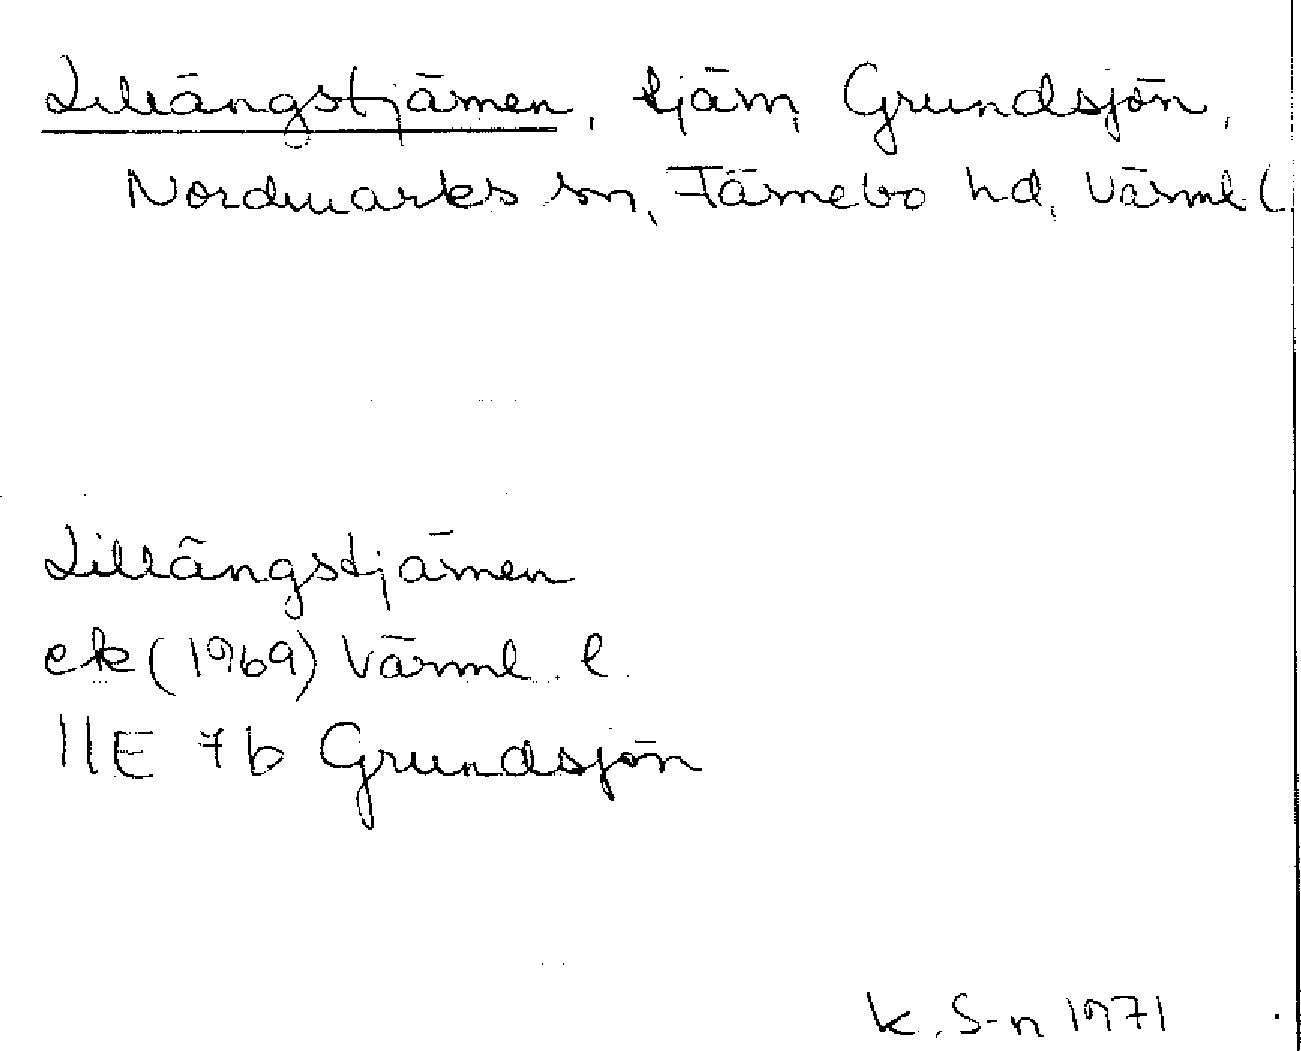 Lillängstjärnen, tjärn, Grundsjön,
Nordmarks sn, Färnebo hd, Värml l.
Lillängstjärnen
ek (1969) Värml. l.
11E 7b Grundsjön
K. S-n 1971